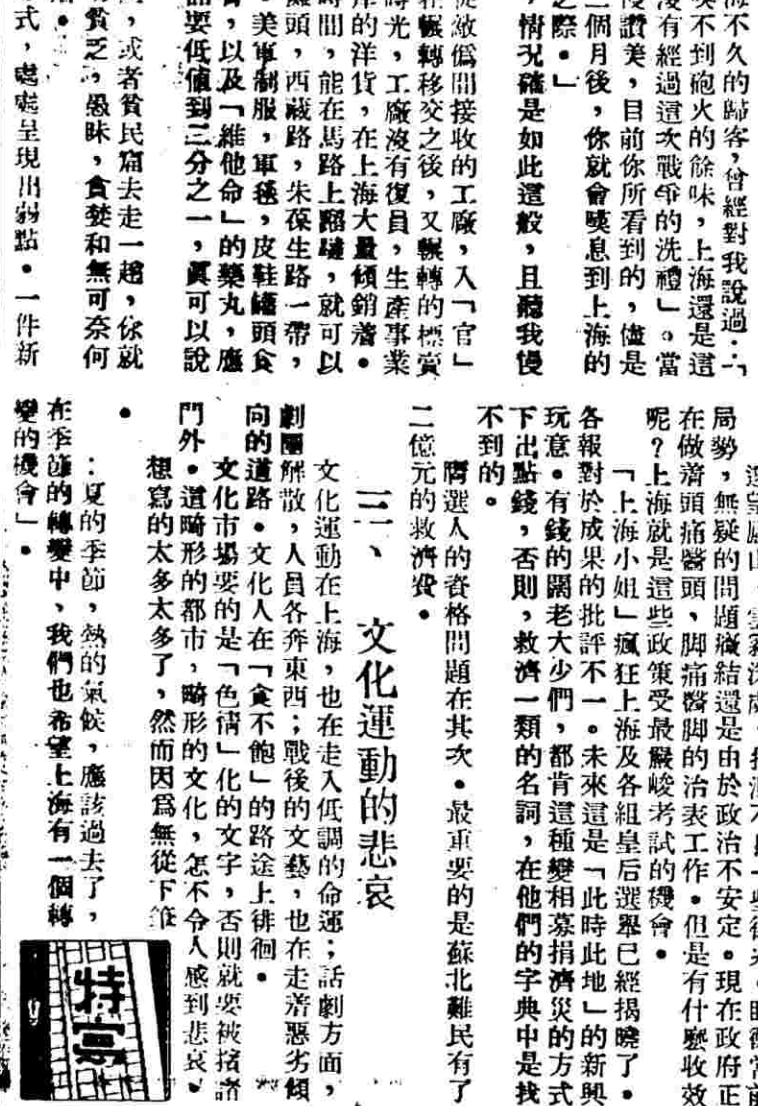 海不久的歸客，曾經對我說過：「
嗅不到砲火的餘味，上海還是這
沒有經過這次戰爭的洗禮」。當
讚美，目前你所看到的，僅是
二個月後，你就會嘆息到上海的
之際。」
，情況確是如此這般，且聽我慢
從敵僞間接收的工廠，入「官」
在輾轉移交之後，又輾轉的標賣
時光，工廠沒有復員，生產事業
岸的洋貨，在上海大量傾銷着。
時間，能在馬路上蹓躂，就可以
攤頭，西藏路，朱葆生路一帶，
，美軍制服，軍毯，皮鞋罐頭食
，以及「維他命」的藥丸，應
要低值到三分之一，眞可以說
，或者貧民窟去走一趟，你就
貧乏，愚昧，貪婪和無可奈何
式，處處呈現出弱點。一件新
局勢，無疑的問題癥結還是由於政治不安定。現在政府正
在做着頭痛醫頭，脚痛醫脚的治表工作。但是有什麼收效
呢？上海就是這些政策受最嚴峻考試的機會。
「上海小姐」瘋狂上海及各組皇后選舉已經揭曉了。
各報對於成果的批評不一。未來這是「此時此地」的新興
玩意。有錢的闊老大少們，都肯這種變相募捐濟災的方式
下出點錢，否則，救濟一類的名詞，在他們的字典中是找
不到的。
膺選人的資格問題在其次。最重要的是蘇北難民有了
二億元的救濟費。
三、文化運動的悲哀
文化運動在上海，也在走入低調的命運；話劇方面，
劇團解散，人員各奔東西；戰後的文藝，也在走着惡劣傾
向的道路。文化人在「食不飽」的路途上徘徊。
文化市場要的是「色情」化的文字，否則就要被摒諸
門外。這畸形的都市，畸形的文化，怎不令人感到悲哀。
想寫的太多太多了，然而因爲無從下筆
。
：夏的季節，熱的氣候，應該過去了，
在季節的轉變中，我們也希望上海有一個轉
變的機會」。
特寫